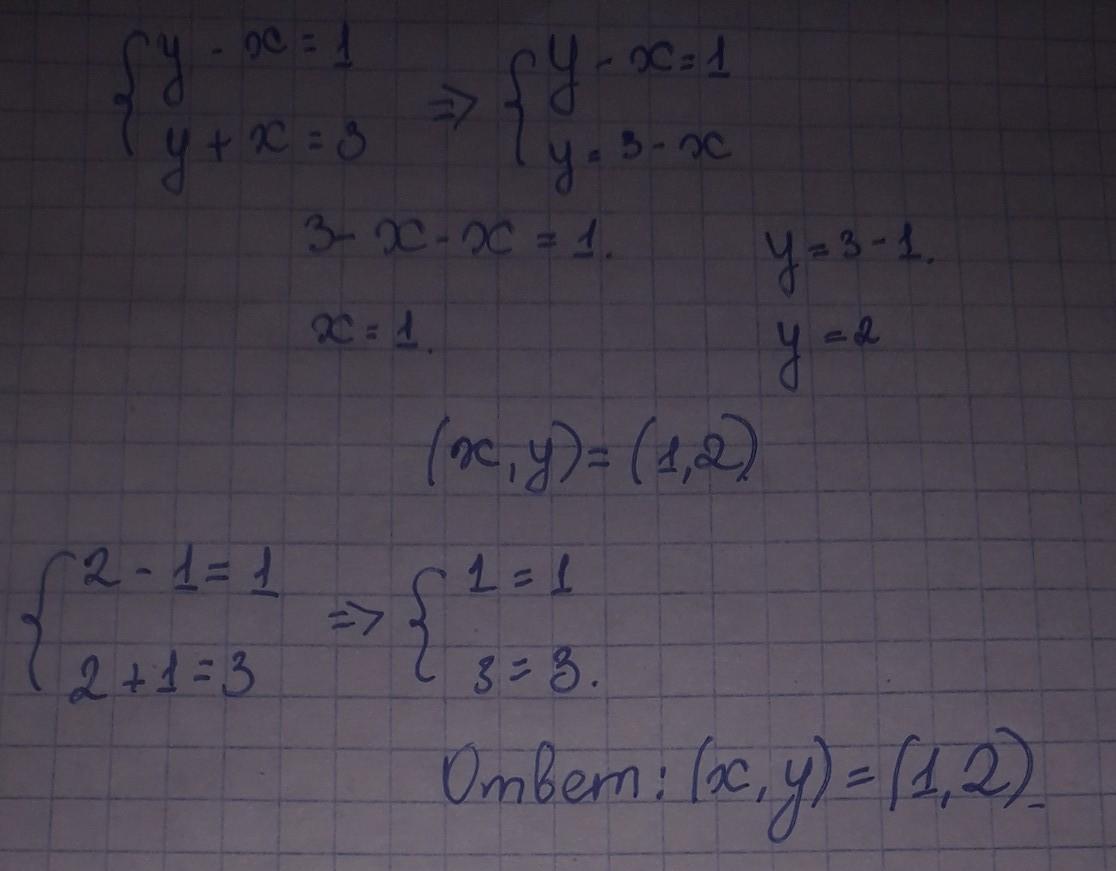 { y - x = 1 => { y - x = 1
y + x = 3 y = 3 - x
3 - x - x = 1. y = 3 - 1.
x = 1. y = 2
(x, y) = (1, 2)
{ 2 - 1 = 1 => { 1 = 1
2 + 1 = 3 3 = 3.
Ответ: (x, y) = (1, 2).